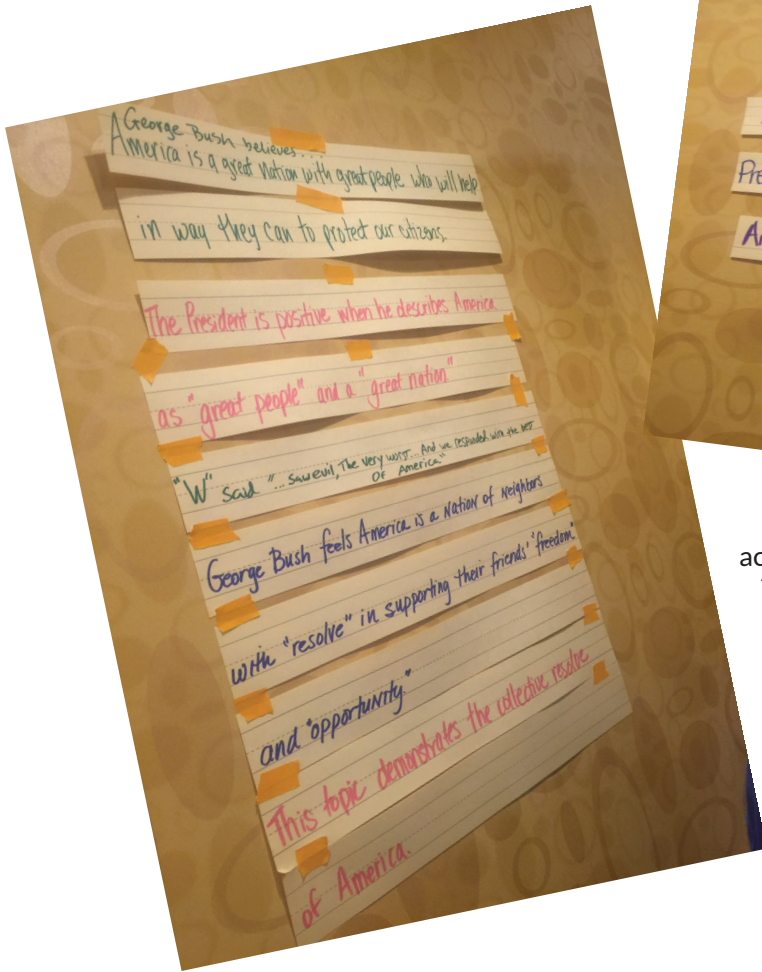 George Bush believes...
America is a great nation with great people who will help
in way they can to protect our citizens.
The President is positive when he describes America
as "great people" and a "great nation"
"W" said "...saw evil, The very worst... And we responded with the best
Of America"
George Bush feels America is a Nation of Neighbors
with "resolve" in supporting their friends' "freedom"
and "opportunity."
This topic demonstrates the collective resolve
of America.
Pre
A
ac